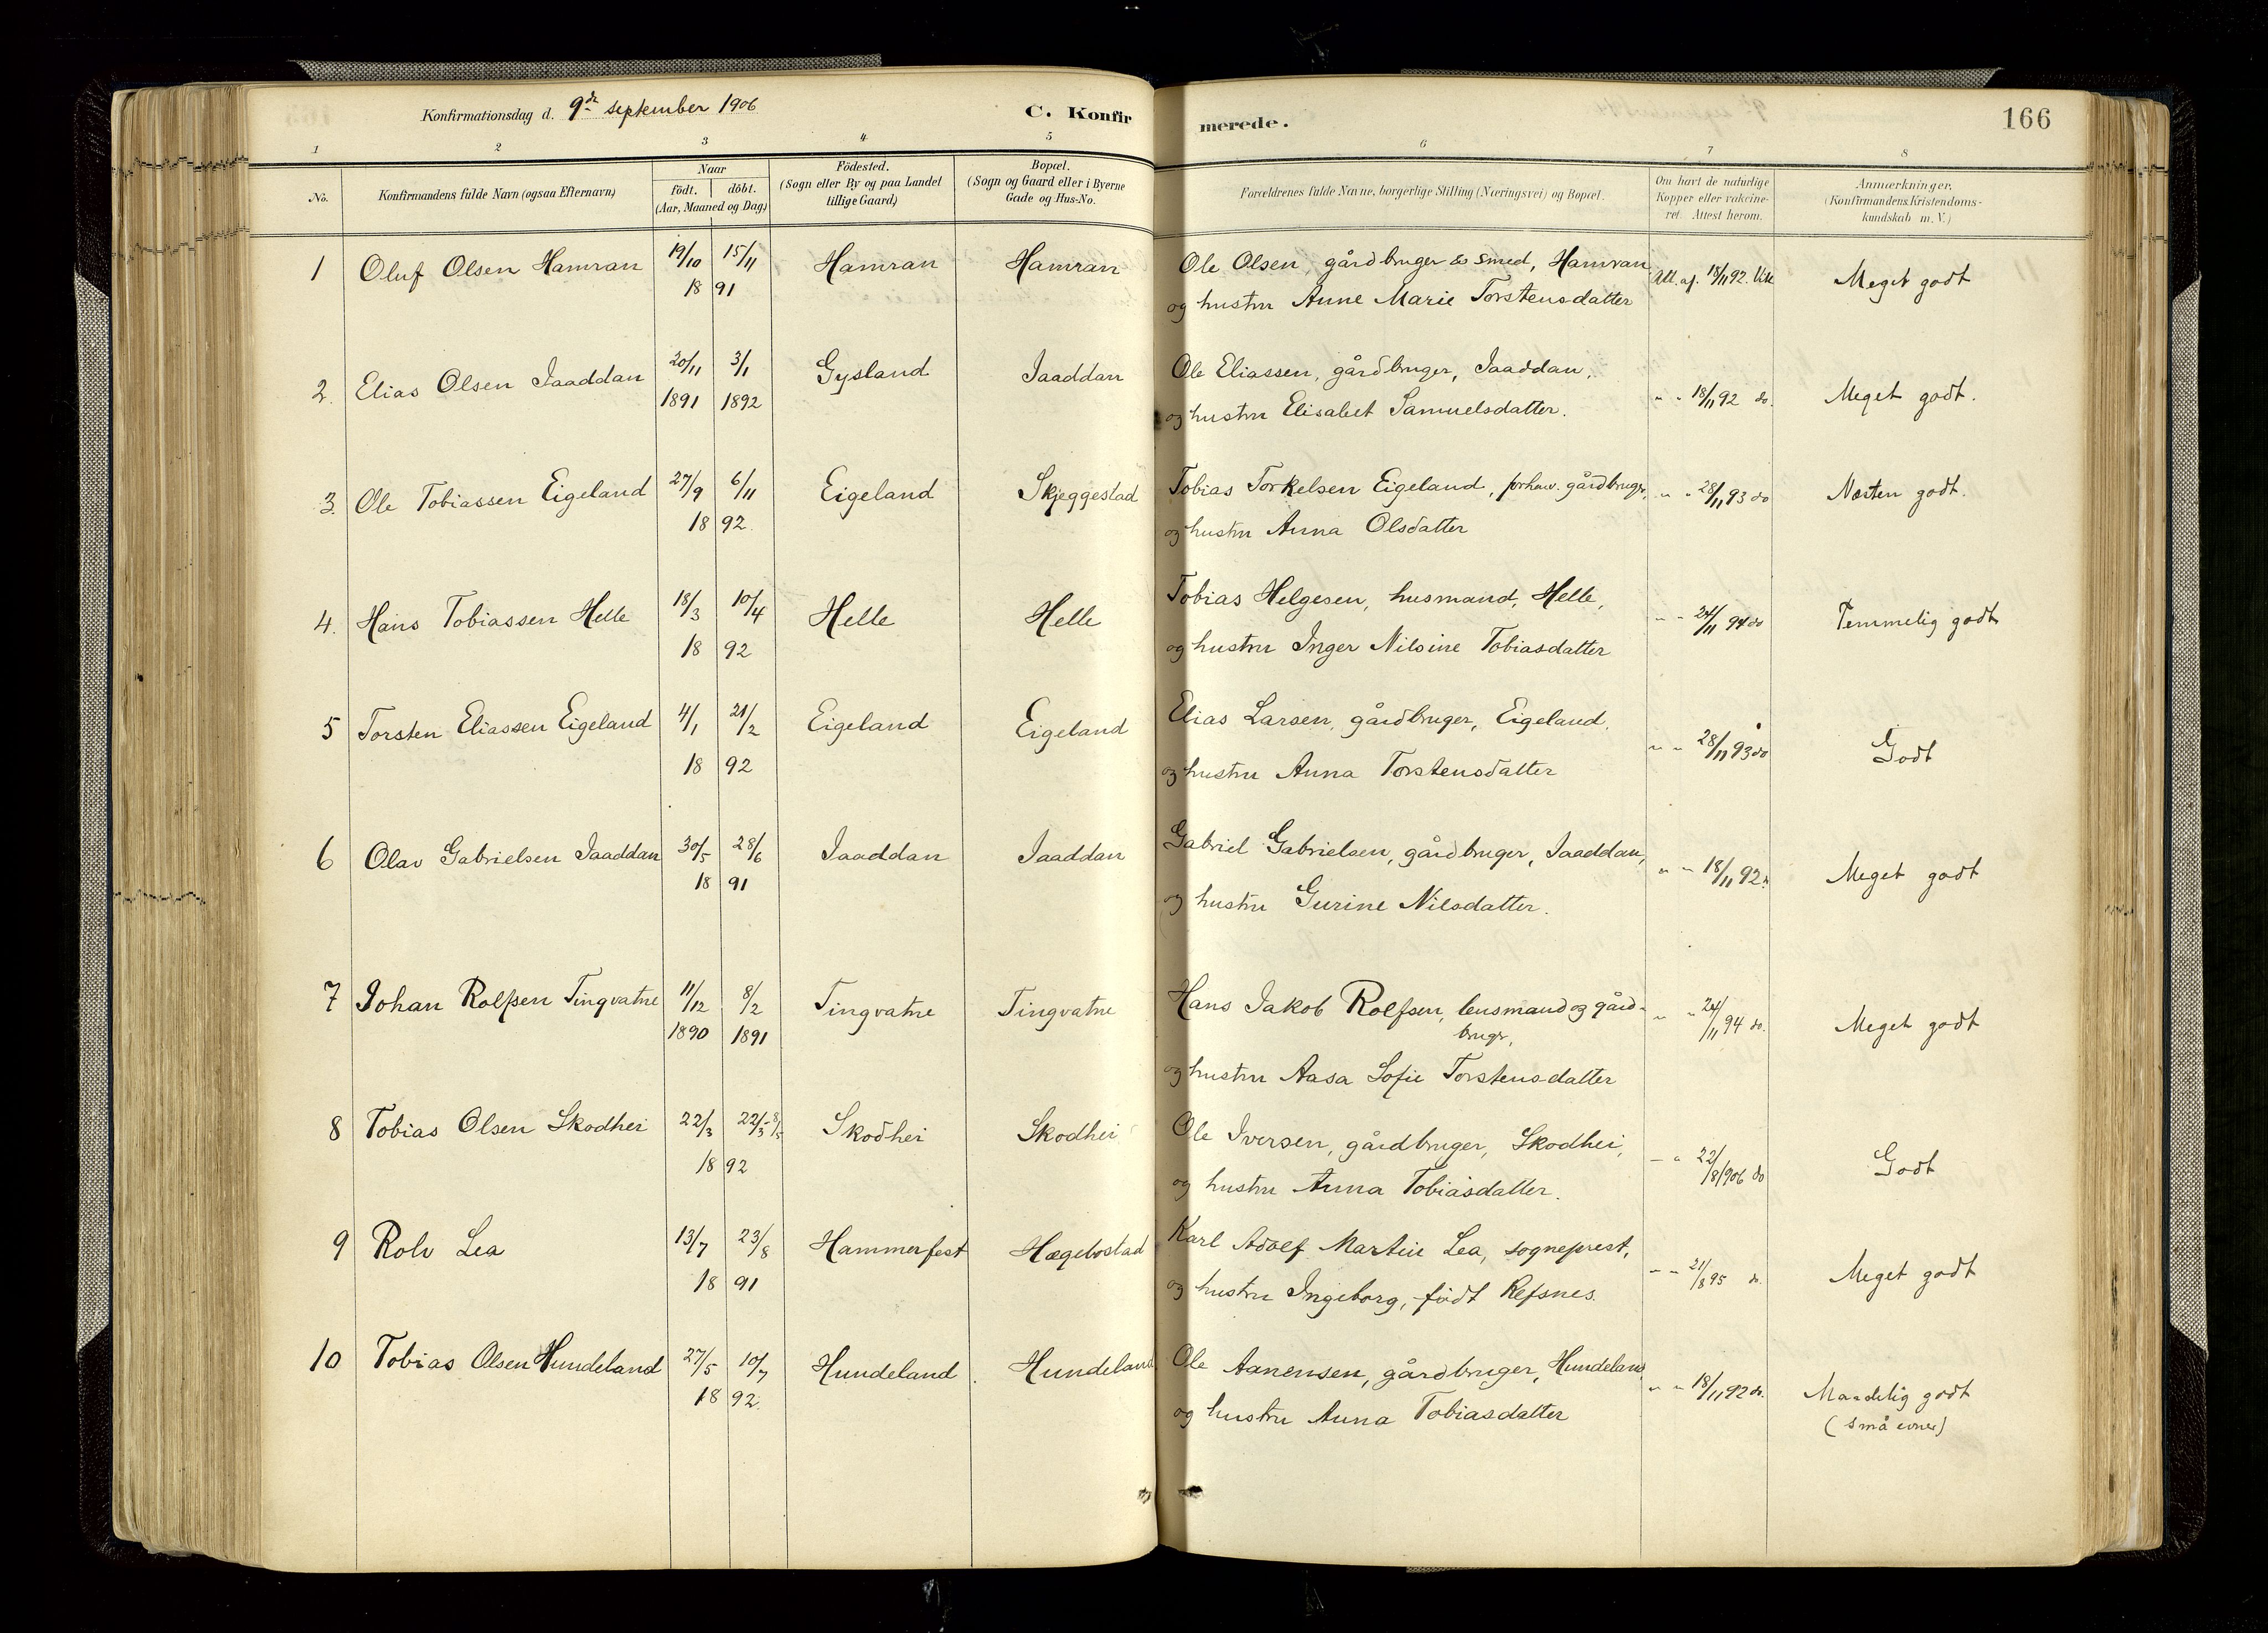 Konfirmationsdag d. 9de september 1906
C. Konfirmerede.
166
1 2 3 4 5 6 7 8
No.
Konfirmandens fulde Navn (ogsaa Efternavn)
Naar
født. | døbt.
(Aar, Maaned og Dag)
Fødested.
(Sogn eller By og paa Landet
tillige Gaard)
Bopæl.
(Sogn og Gaard eller i Byerne
Gade og Hus-No.
Forældrenes fulde Navne, borgerlige Stilling (Næringsvei) og Bopæl.
Om havt de naturlige
Kopper eller vakcine-
ret. Attest herom.
Anmærkninger.
(Konfirmandens Kristendoms-
kundskab m. V.)
1 Oluf Olsen Hamran 19/10 15/11 Hamran Hamran Ole Olsen, gårdbruger & smed, Hamran Att. af. 18/11 92. Meget godt
18 91 og hustru Anne Marie Torstensdatter
2. Elias Olsen Iaaddan 20/11 3/1 Gysland Iaaddan Ole Eliassen, gårdbruger, Iaaddan, " " 18/11 92 do. Meget godt.
1891 1892 og hustru Elisabet Samuelsdatter.
3. Ole Tobiassen Eigeland 27/9 6/11 Eigeland Skjeggestad Tobias Torkelsen Eigeland, forhav. gårdbruger, " " 28/11 93 do Næsten godt.
18 92. og hustru Anna Olsdatter
4. Hans Tobiassen Helle 18/3 10/4 Helle Helle Tobias Helgesen, husmand, Helle, " " 24/11 94 do Temmelig godt
18 92 og hustru Inger Nilsine Tobiasdatter
5 Torsten Eliassen Eigeland 4/1 21/2 Eigeland Eigeland Elias Larsen, gårdbruger, Eigeland, " " 28/11 93 do Godt
18 92 og hustru Anna Torstensdatter
6 Olav Gabrielsen Iaaddan 30/5 28/6 Iaaddan Iaaddan Gabriel Gabrielsen, gårdbruger, Iaaddan, " " 18/11 92 Meget godt
18 91 og hustru Gurine Nilsdatter.
7 Johan Rolfsen Tingvatne 11/12 8/2 Tingvatne Tingvatne Hans Jakob Rolfsen, lensmand og gård- " " 24/11 94 do. Meget godt
1890 1891 bruger,
og hustru Aasa Sofie Torstensdatter
8 Tobias Olsen Skodhei 22/3 22/3 - 8/5 Skodhei Skodhei Ole Iversen, gårdbruger, Skodhei, " " 22/8 1906 do Godt
18 92 og hustru Anna Tobiasdatter.
9 Rolv Lea 13/7 23/8 Hammerfest Hægebostad Karl Adolf Martin Lea, sogneprest, " " 21/8 95 do. Meget godt
18 91 og hustru Ingeborg, født Refsnes.
10 Tobias Olsen Hundeland 27/5 10/7 Hundeland Hundeland Ole Aanensen, gårdbruger, Hundeland " " 18/11 92 do. Maadelig godt
18 92. og hustru Anna Tobiasdatter (små evner)